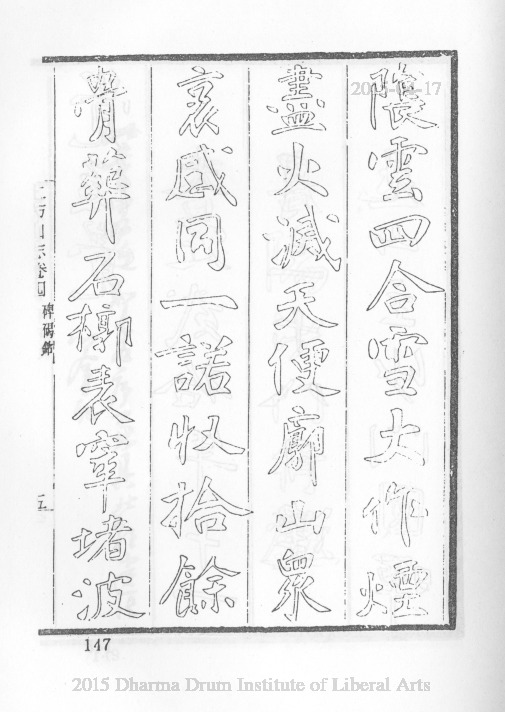 雲四合雪大作煙
盡火滅天便廓山眾
哀感同一諾収拾餘
骨葬石槨表窣堵波
碑碣銘
五
147
2015 Dharma Drum Institute of Liberal Arts